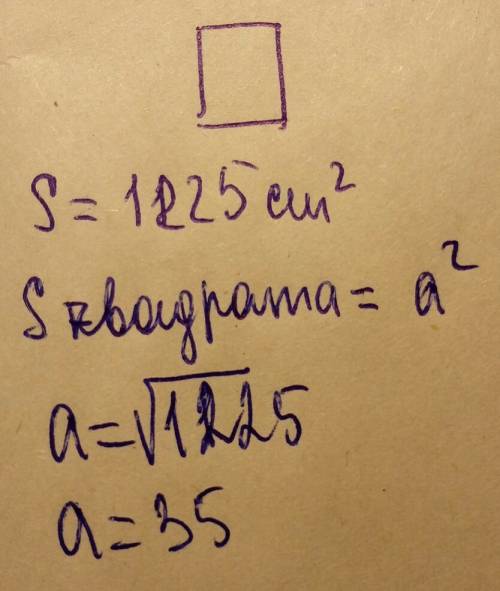 S = 1225 см²
S квадрата = a²
a = √1225
a = 35